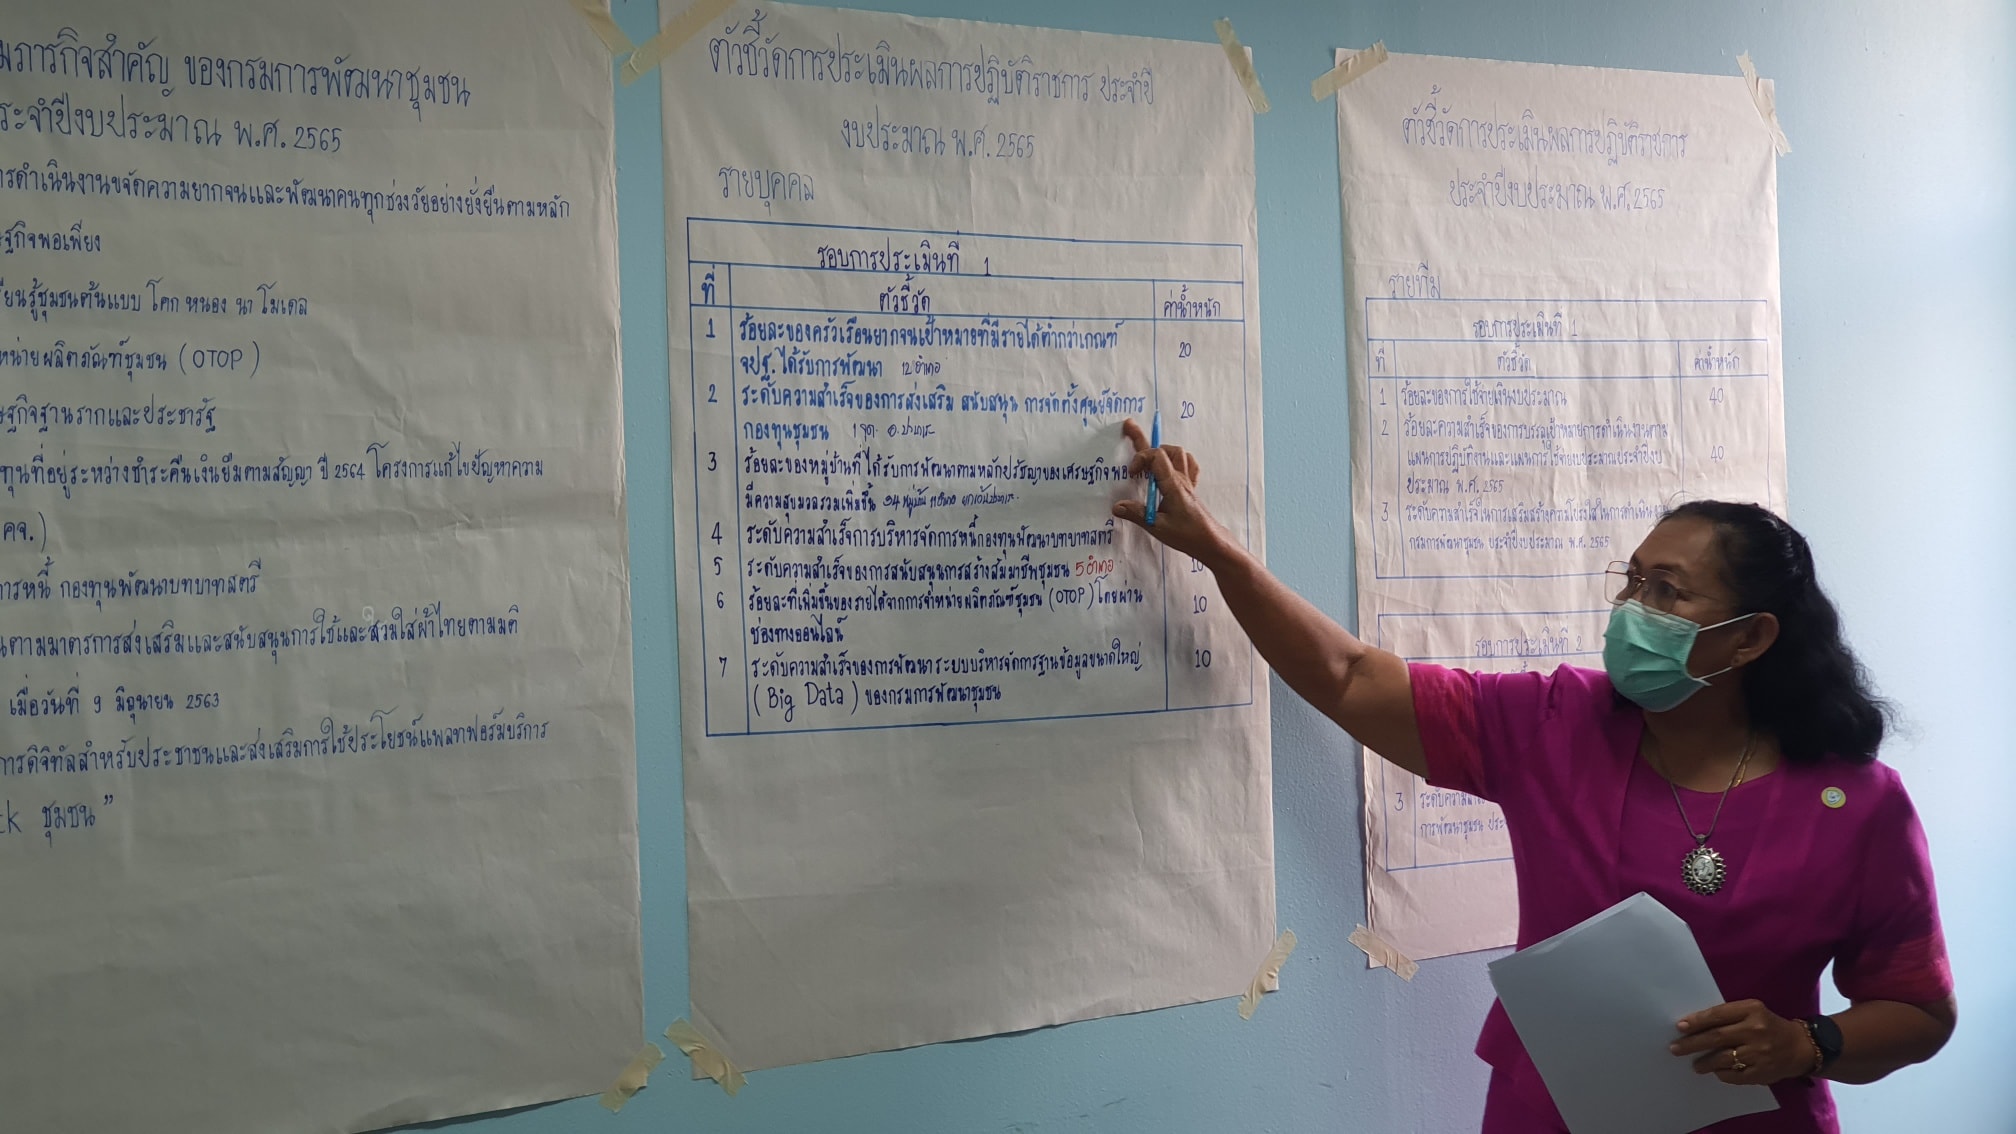 มภารกิจสำคัญ ของกรมการพัฒนาชุมชน
ระจำปีงบประมาณ พ.ศ. 2565
ารดำเนินงานขจัดความยากจนและพัฒนาคนทุกช่วงวัยอย่างยั่งยืนตามหลัก
ษฐกิจพอเพียง
รียนรู้ชุมชนต้นแบบ โคก หนอง นา โมเดล
หน่ายผลิตภัณฑ์ชุมชน (OTOP)
ษฐกิจฐานรากและประชารัฐ
ทุนที่อยู่ระหว่างชำระคืนเงินยืมตามสัญญา ปี 2564 โครงการแก้ไขปัญหาความ
คจ.)
การหนี้ กองทุนพัฒนาบทบาทสตรี
นตามมาตรการส่งเสริมและสนับสนุนการใช้และสวมใส่ผ้าไทยตามมติ
เมื่อวันที่ 9 มิถุนายน 2563
การดิจิทัลสำหรับประชาชนและส่งเสริมการใช้ประโยชน์แพลทฟอร์มบริการ
ck ชุมชน”
ตัวชี้วัดการประเมินผลการปฏิบัติราชการ ประจำปี
งบประมาณ พ.ศ. 2565
รายบุคคล
รอบการประเมินที่ 1
ที่ ตัวชี้วัด ค่าน้ำหนัก
1 ร้อยละของครัวเรือนยากจนเป้าหมายที่มีรายได้ต่ำกว่าเกณฑ์ 20
จปฐ. ได้รับการพัฒนา 12 อำเภอ
2 ระดับความสำเร็จของการส่งเสริม สนับสนุน การจัดตั้งศูนย์จัดการ 20
กองทุนชุมชน 1 จุด
3 ร้อยละของหมู่บ้านที่ได้รับการพัฒนาตามหลักปรัชญาของเศรษฐกิจพอ
มีความสุขมวลรวมเพิ่มขึ้น 24 หมู่บ้าน 11 อำเภอ
4 ระดับความสำเร็จการบริหารจัดการหนี้กองทุนพัฒนาบทบาทสตรี
5 ระดับความสำเร็จของการสนับสนุนการสร้างสัมมาชีพชุมชน 5 อำเภอ 10
6 ร้อยละที่เพิ่มขึ้นของรายได้จากการจำหน่ายผลิตภัณฑ์ชุมชน (OTOP) โดยผ่าน 10
ช่องทางออนไลน์
7 ระดับความสำเร็จของการพัฒนาระบบบริหารจัดการฐานข้อมูลขนาดใหญ่ 10
(Big Data) ของกรมการพัฒนาชุมชน
ตัวชี้วัดการประเมินผลการปฏิบัติราชการ
ประจำปีงบประมาณ พ.ศ. 2565
รายทีม
รอบการประเมินที่ 1
ที่ ตัวชี้วัด ค่าน้ำหนัก
1 ร้อยละของการใช้จ่ายเงินงบประมาณ 40
2 ร้อยละความสำเร็จของการบรรลุเป้าหมายการดำเนินงานตาม
แผนการปฏิบัติงานและแผนการใช้จ่ายงบประมาณประจำปีงบ 40
ประมาณ พ.ศ. 2565
3 ระดับความสำเร็จในการเสริมสร้างความโปร่งใสในการดำเนินงาน
กรมการพัฒนาชุมชน ประจำปีงบประมาณ พ.ศ. 2565
รอบการประเมินที่ 2
3 ระดับความสำเ
การพัฒนาชุมชน ประ